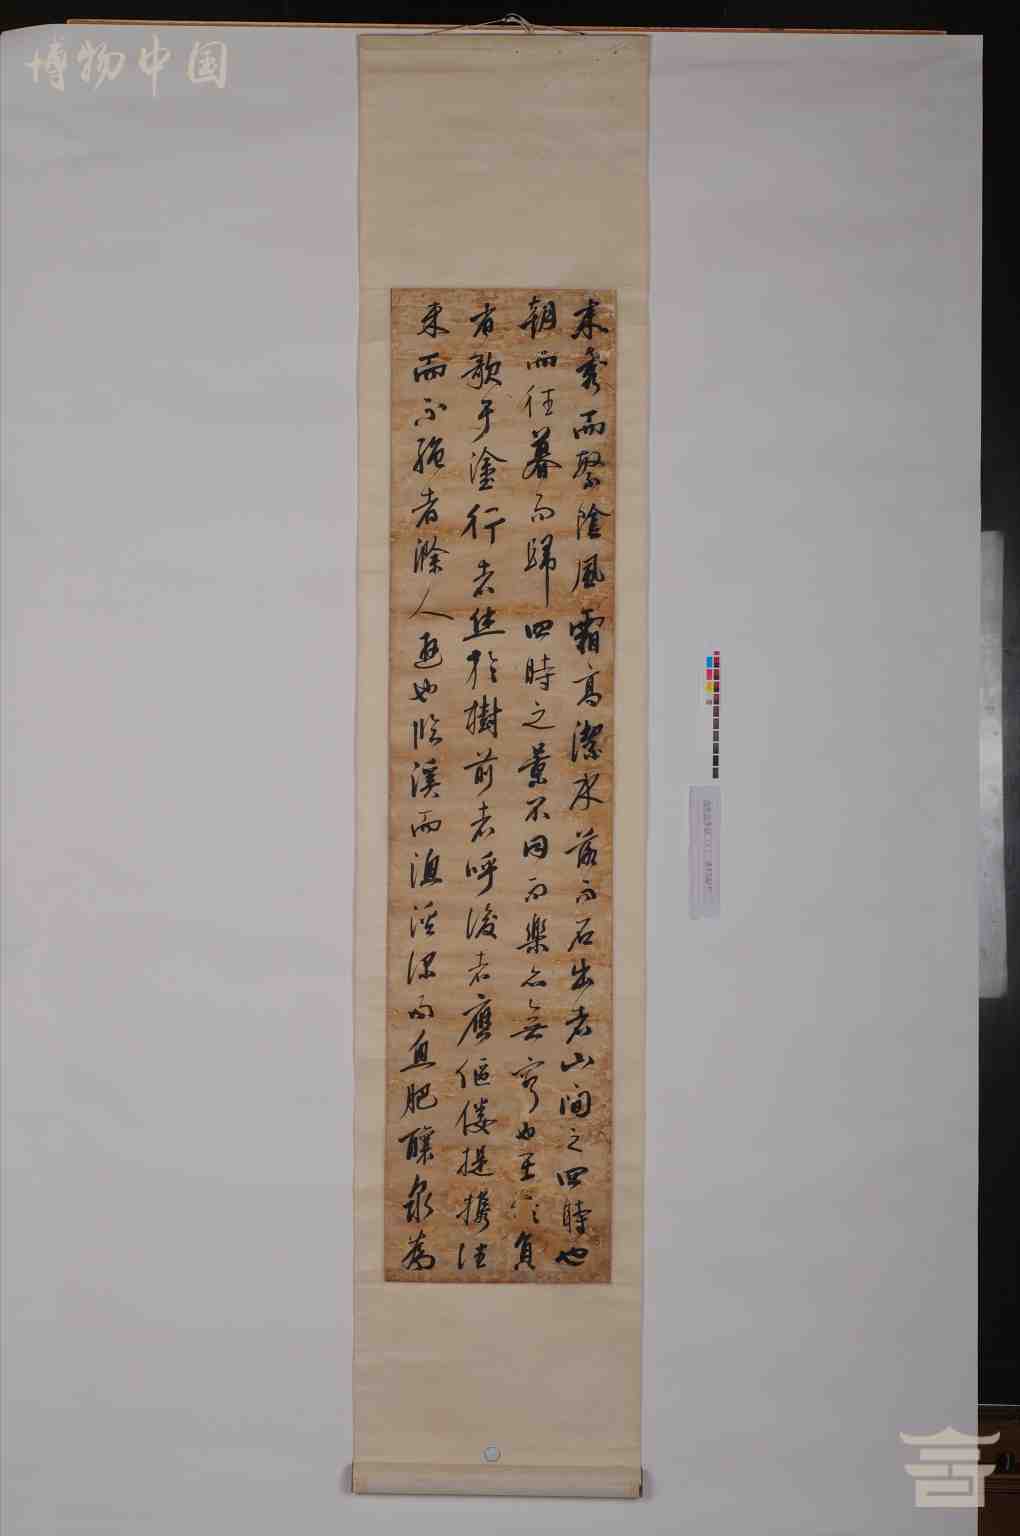 博物中国
木秀而繁陰風霜高潔水落而石出者山間之四時也
朝而往暮而歸四時之景不同而樂亦無窮也至於負
者歌于塗行者休於樹前者呼後者應傴僂提攜往
來而不絕者滁人遊也臨溪而漁溪深而魚肥釀泉為